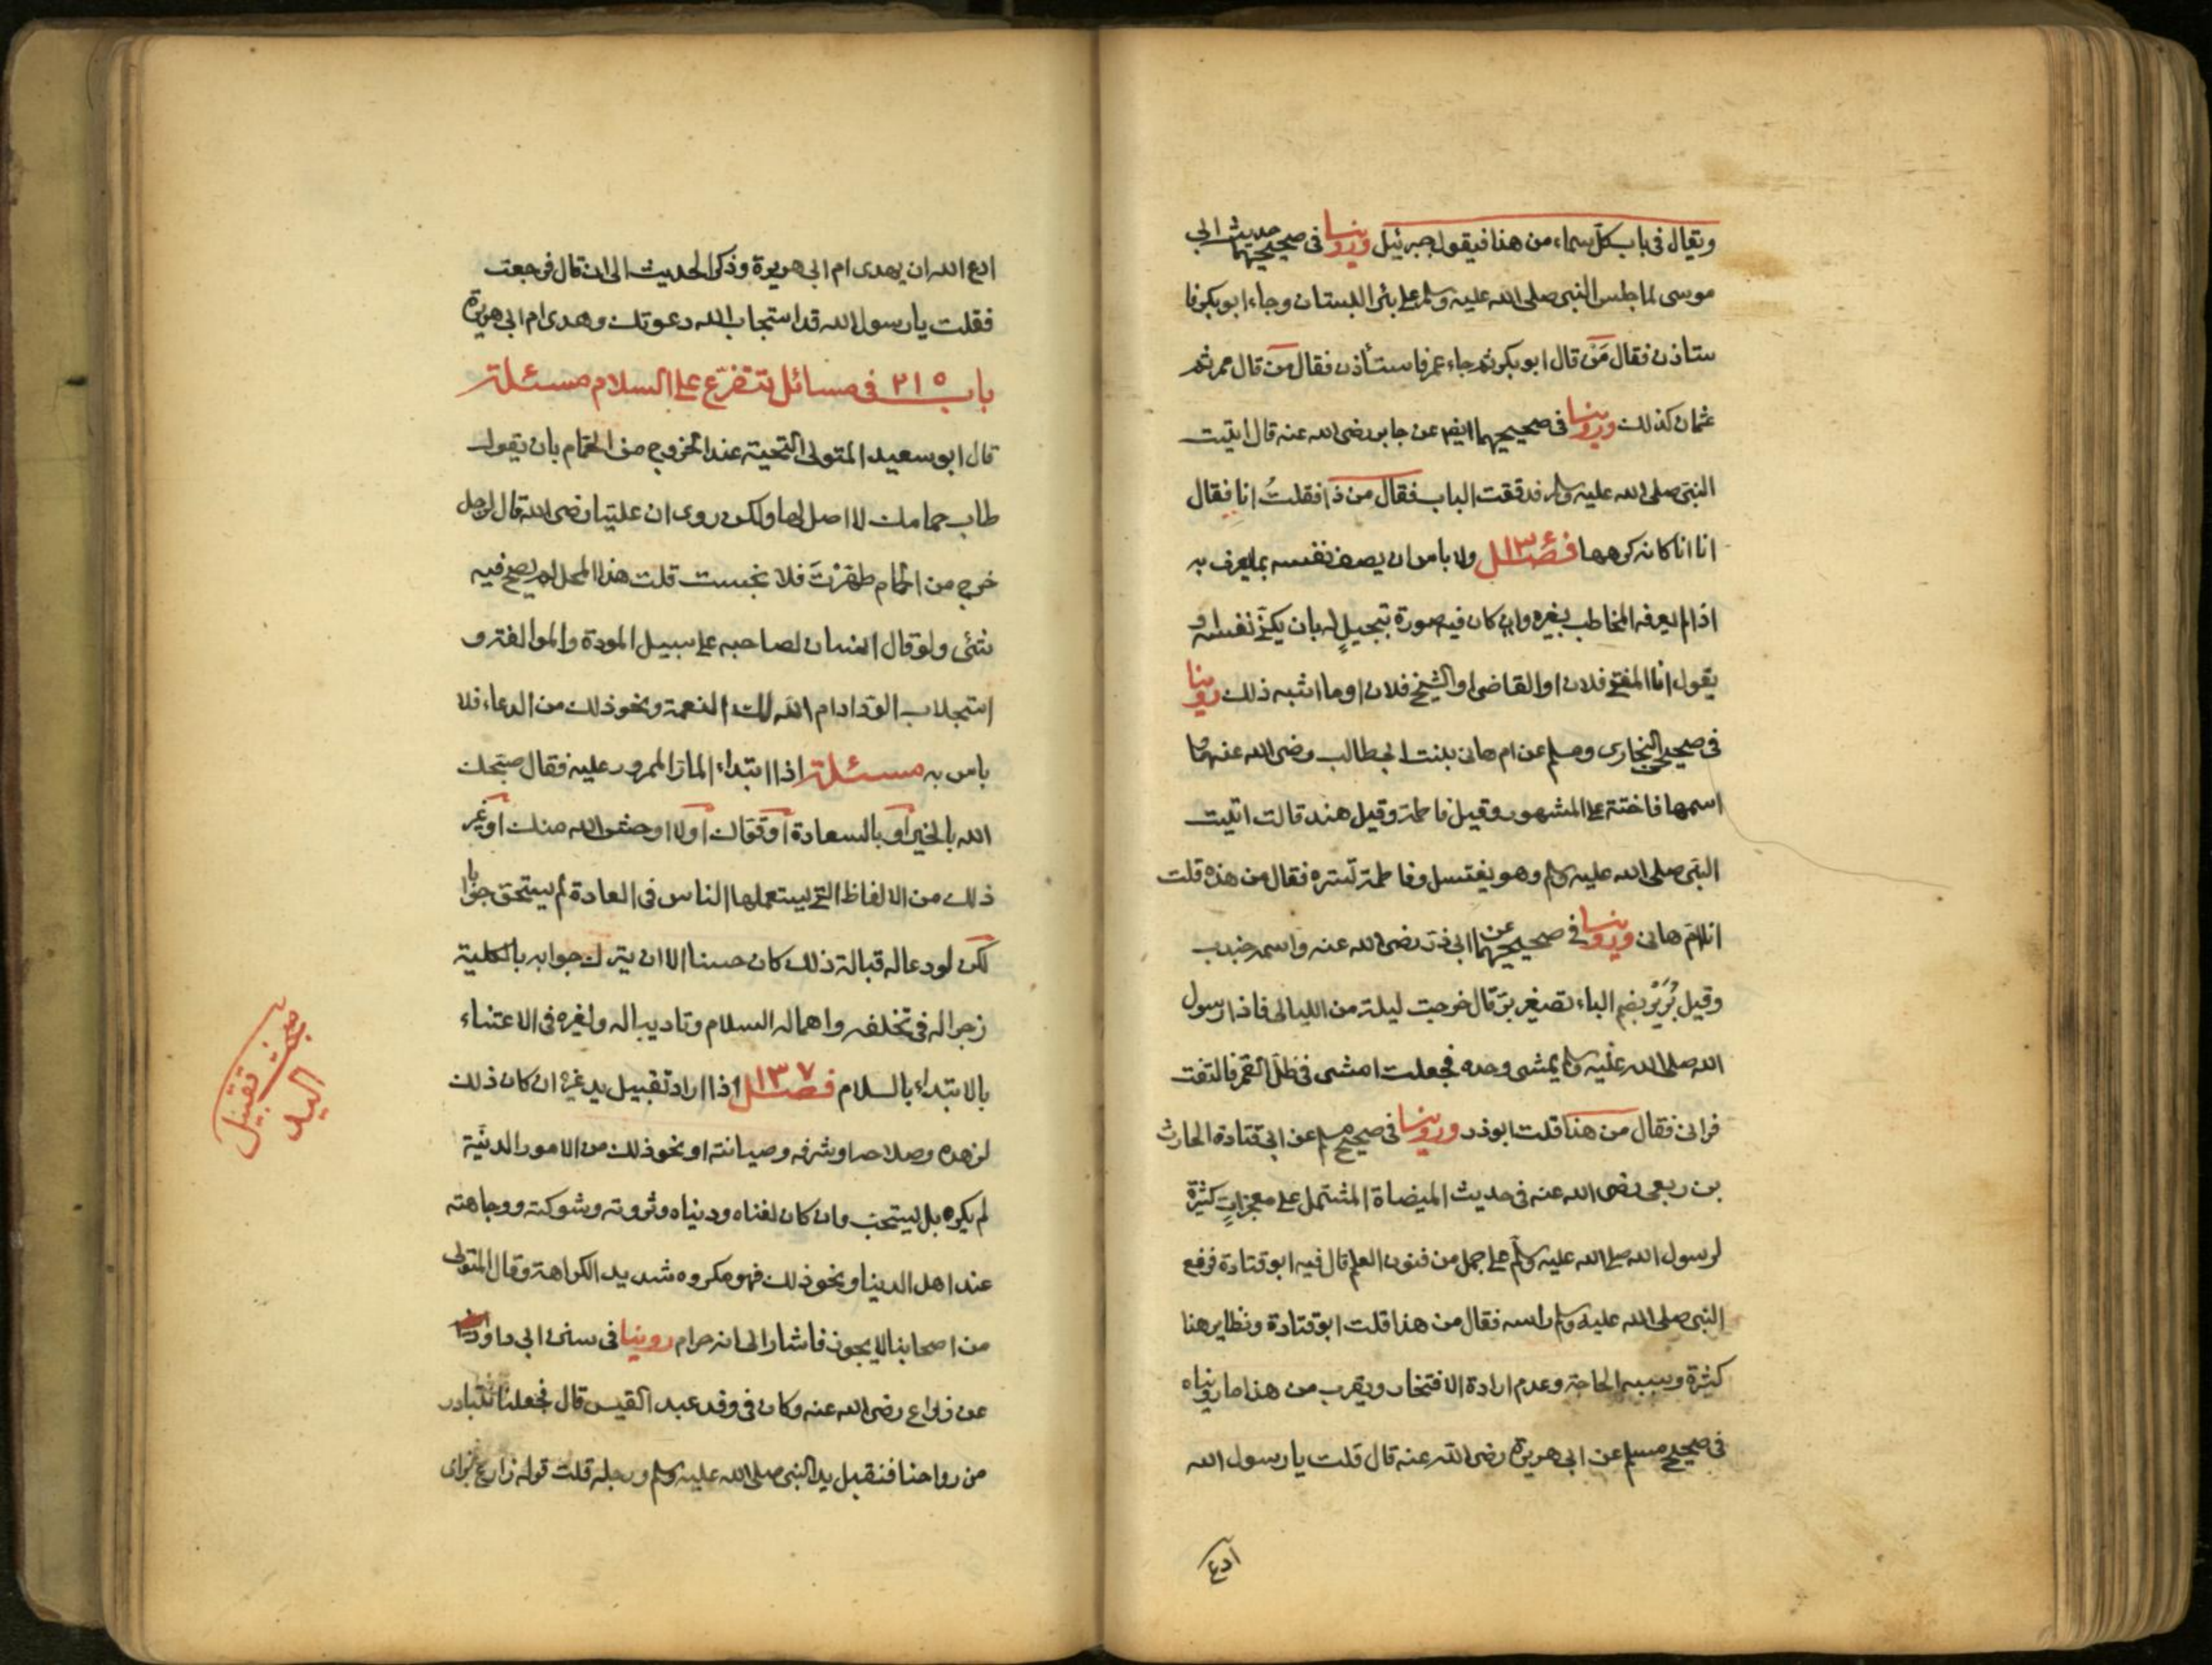 ويقال في باب كل سماء من هذا فيقول جبرئيل وروينا في صحيحيهما حديث ابي
موسى لما جلس النبي صلى الله عليه وسلم على بئر البستان وجاء ابو بكر فا
ستاذن فقال مَنْ قال ابو بكر ثم جاء عمر فاستأذن فقال من قال عمر ثم
عثمان كذلك وروينا في صحيحيهما ايضا عن جابر رضى الله عنه قال اتيت
النبي صلى الله عليه وسلم فدققت الباب فقال من ذا فقلتُ انا فقال
انا انا كانه كرهها فصل ١٣٦ ولا باس ان يصف نفسه بما يعرف به
اذا لم يعرفه المخاطب بغيره وان كان فيه صورة تبجيلٍ له بان يكنّي نفسه او
يقول انا المفتي فلان او القاضي او الشيخ فلان او ما اشبه ذلك روينا
في صحيحي البخاري ومسلم عن ام هاني بنت ابي طالب رضى الله عنها و
اسمها فاختة على المشهور وقيل فاطمة وقيل هند قالت اتيت
النبي صلى الله عليه وسلم وهو يغتسل وفاطمة تستره فقال من هذه قلت
انا امّ هاني وروينا في صحيحيهما عن ابي ذر رضى الله عنه واسمه جندب
وقيل بُرَيْرٌ بضم الباء تصغير برّ قال خرجت ليلة من الليالي فاذا رسول
الله صلى الله عليه وسلم يمشي وحده فجعلت امشي في ظل القمر فالتفت
فراني فقال من هذا قلت ابو ذر وروينا في صحيح مسلم عن ابي قتادة الحارث
بن ربعي رضى الله عنه في حديث الميضاة المشتمل على معجزاتٍ كثيرة
لرسول الله صلى الله عليه وسلم على جمل من فنون العلم قال فيه ابو قتادة فرفع
النبي صلى الله عليه وسلم راسه فقال من هذا قلت ابو قتادة ونظاير هذا
كثيرة وسببه الحاجة وعدم ارادة الافتخار ويقرب من هذا ما رويناه
في صحيح مسلم عن ابي هريرة رضى الله عنه قال قلت يا رسول الله
ادع
ادع الله ان يهدي ام ابي هريرة وذكر الحديث الى ان قال فرجعت
فقلت يا رسول الله قد استجاب الله دعوتك وهدى ام ابي هريرة
باب ٢١٥ في مسائل تتفرّع على السلام مسئلة
قال ابو سعيد المتولي التحية عند الخروج من الحمام بان يقول
طاب حمامك لا اصل لها ولكن روى ان عليّا رضى الله قال لرجل
خرج من الحمام طهرْتَ فلا نجست قلت هذا المحل لم يصح فيه
شئ ولو قال انسان لصاحبه على سبيل المودة والموالفة و
استجلاب الودّ ادام الله لك النعمة ونحو ذلك من الدعاء فلا
باس به مسئلة اذا ابتداء المارّ الممرور عليه فقال صبّحك
الله بالخير او بالسعادة او قوّاك او لا اوحش الله منك او غير
ذلك من الالفاظ التي يستعملها الناس في العادة لم يستحق جوابا
لكن لو دعا له قبالة ذلك كان حسنا الا ان يترك جوابه بالكلية
زجرا له في تخلفه واهماله السلام وتاديبا له ولغيره في الاعتناء
بالابتداء بالسلام فصل ١٣٧ اذا اراد تقبيل يد غيره ان كان ذلك
لزهده وصلاحه او شرفه وصيانته او نحو ذلك من الامور الدنيّة
لم يكره بل يستحب وان كان لغناه ودنياه وثروته وشوكته ووجاهته
عند اهل الدنيا ونحو ذلك فهو مكروه شديد الكراهة وقال المتولي
من اصحابنا لا يجوز فاشار الى انه حرام روينا في سنن ابي داود
عن زارع رضى الله عنه وكان في وفد عبد القيس قال فجعلنا نتبادر
من رواحنا فنقبل يد النبي صلى الله عليه وسلم ورجله قلت قوله زارع بزاي
مبحث تقبيل
اليد